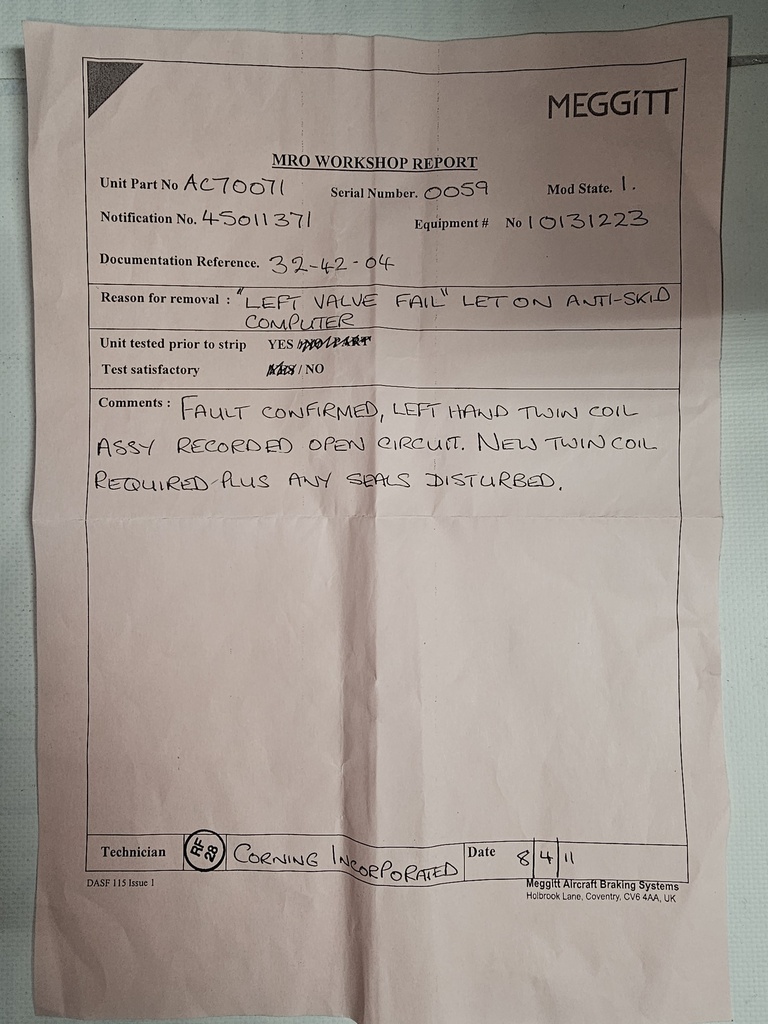 MEGGiTT
MRO WORKSHOP REPORT
Unit Part No AC70071 Serial Number. 0059 Mod State. 1.
Notification No. 45011371 Equipment # No 10131223
Documentation Reference. 32-42-04
Reason for removal : "LEFT VALVE FAIL" LET ON ANTI-SKID
COMPUTER
Unit tested prior to strip YES /NO/PART
Test satisfactory YES / NO
Comments : FAULT CONFIRMED, LEFT HAND TWIN COIL
ASSY RECORDED OPEN CIRCUIT. NEW TWIN COIL
REQUIRED PLUS ANY SEALS DISTURBED.
Technician RF 28 CORNING INCORPORATED Date 8/4/11
DASF 115 Issue 1
Meggitt Aircraft Braking Systems
Holbrook Lane, Coventry, CV6 4AA, UK